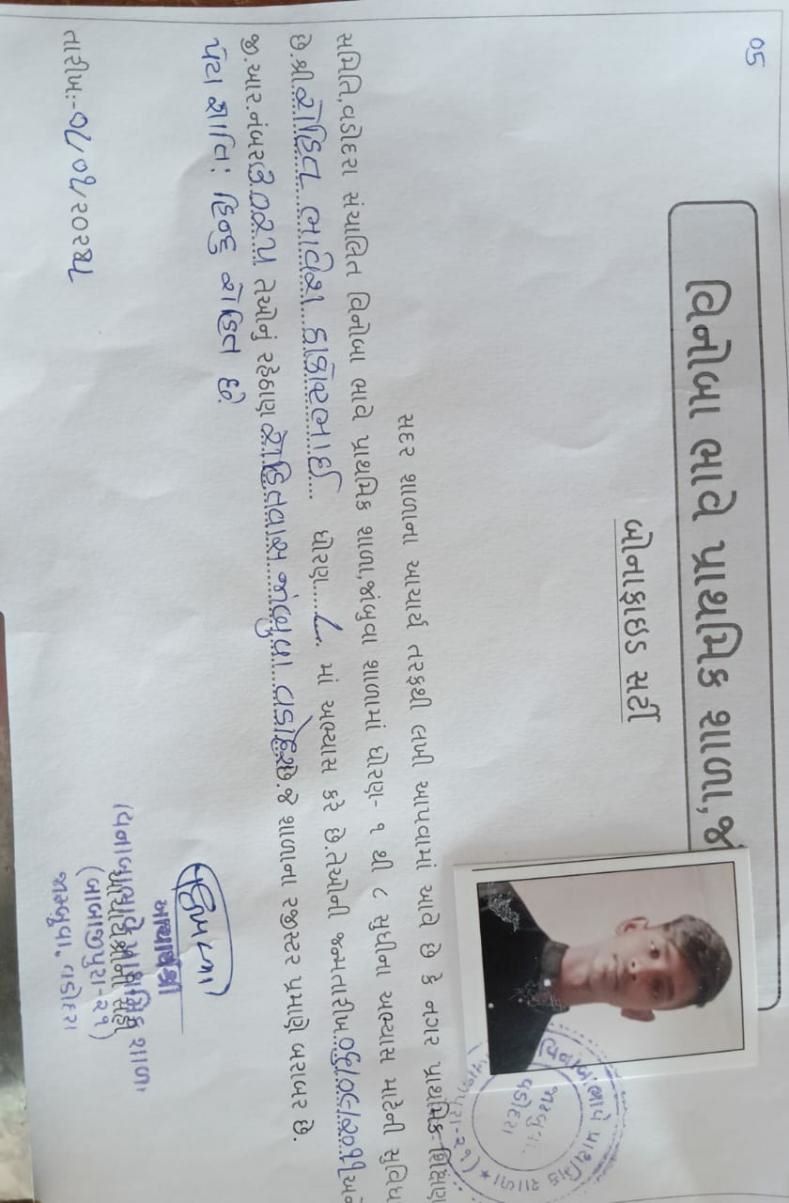 05
વિનોબા ભાવે પ્રાથમિક શાળા,જં
બોનાફાઇડ સર્ટી
સદર શાળાના આચાર્ય તરફથી લખી આપવામાં આવે છે કે નગર પ્રાથમિક શિક્ષણ
સમિતિ,વડોદરા સંચાલિત વિનોબા ભાવે પ્રાથમિક શાળા,જાંબુવા શાળામાં ધોરણ- ૧ થી ૮ સુધીના અભ્યાસ માટેની સુવિધ
છે.શ્રી રોહિત ભાવેશ ઠાકોરભાઇ ધોરણ ૮ માં અભ્યાસ કરે છે.તેઓની જન્મતારીખ
જી.આર.નંબર તેઓનું રહેઠાણ રોહિતવાસ જાંબુવા વડોદરા છે.જે શાળાના રજીસ્ટર પ્રમાણે બરાબર છે.
પેટા જ્ઞાતિ: હિન્દુ રોહિત છે.
તારીખ:-
આચાર્યશ્રી
આચાર્યશ્રીની સહી
વિનોબાભાવે પ્રાથમિક શાળા
(બાબાજીપુરા-૨૧)
જામ્બુવા, વડોદરા
વિનોબાભાવે પ્રાથમિક શાળા
જામ્બુવા,
વડોદરા